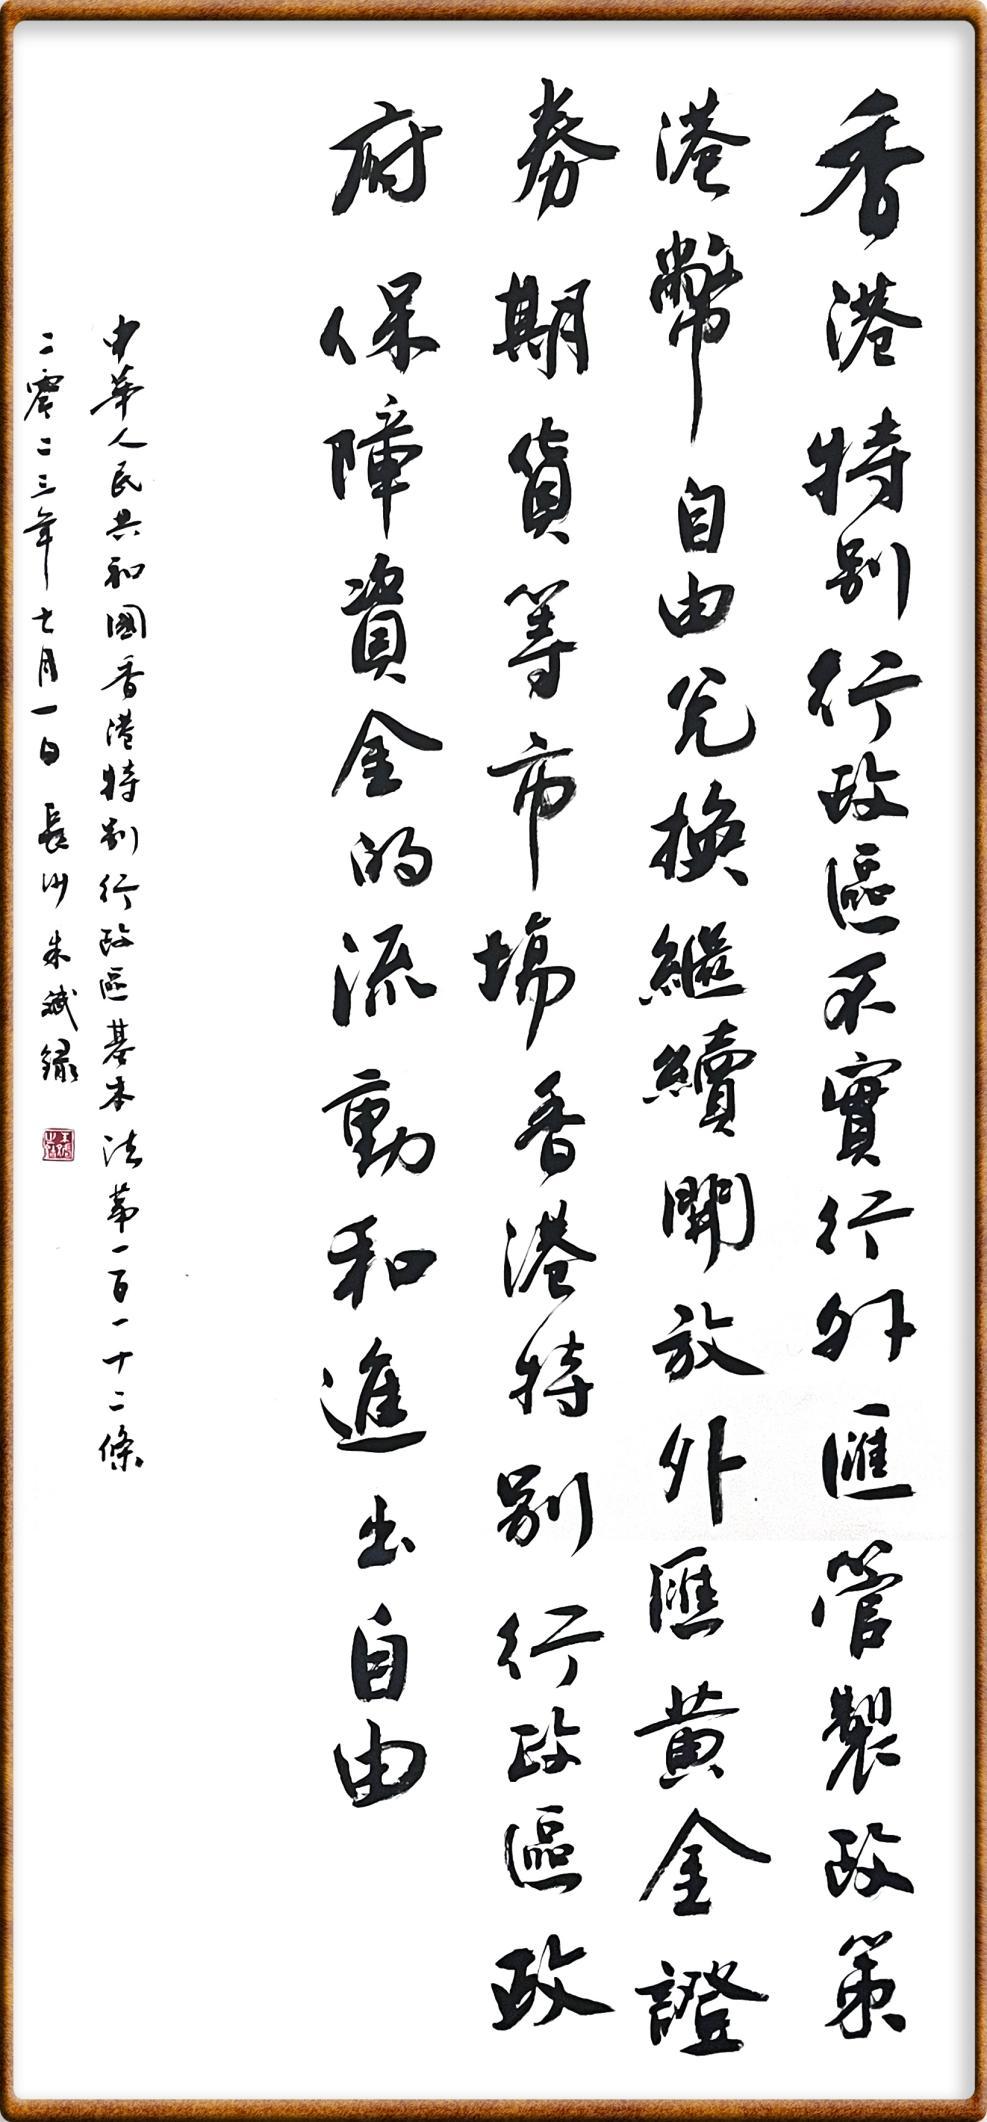 香港特别行政區不實行外匯管製政策
港幣自由兑換繼續開放外匯黄金證
券期貨等市場香港特别行政區政
府保障資金的流動和進出自由
中華人民共和國香港特别行政區基本法第一百一十二條
二零二三年七月一日長沙朱斌録